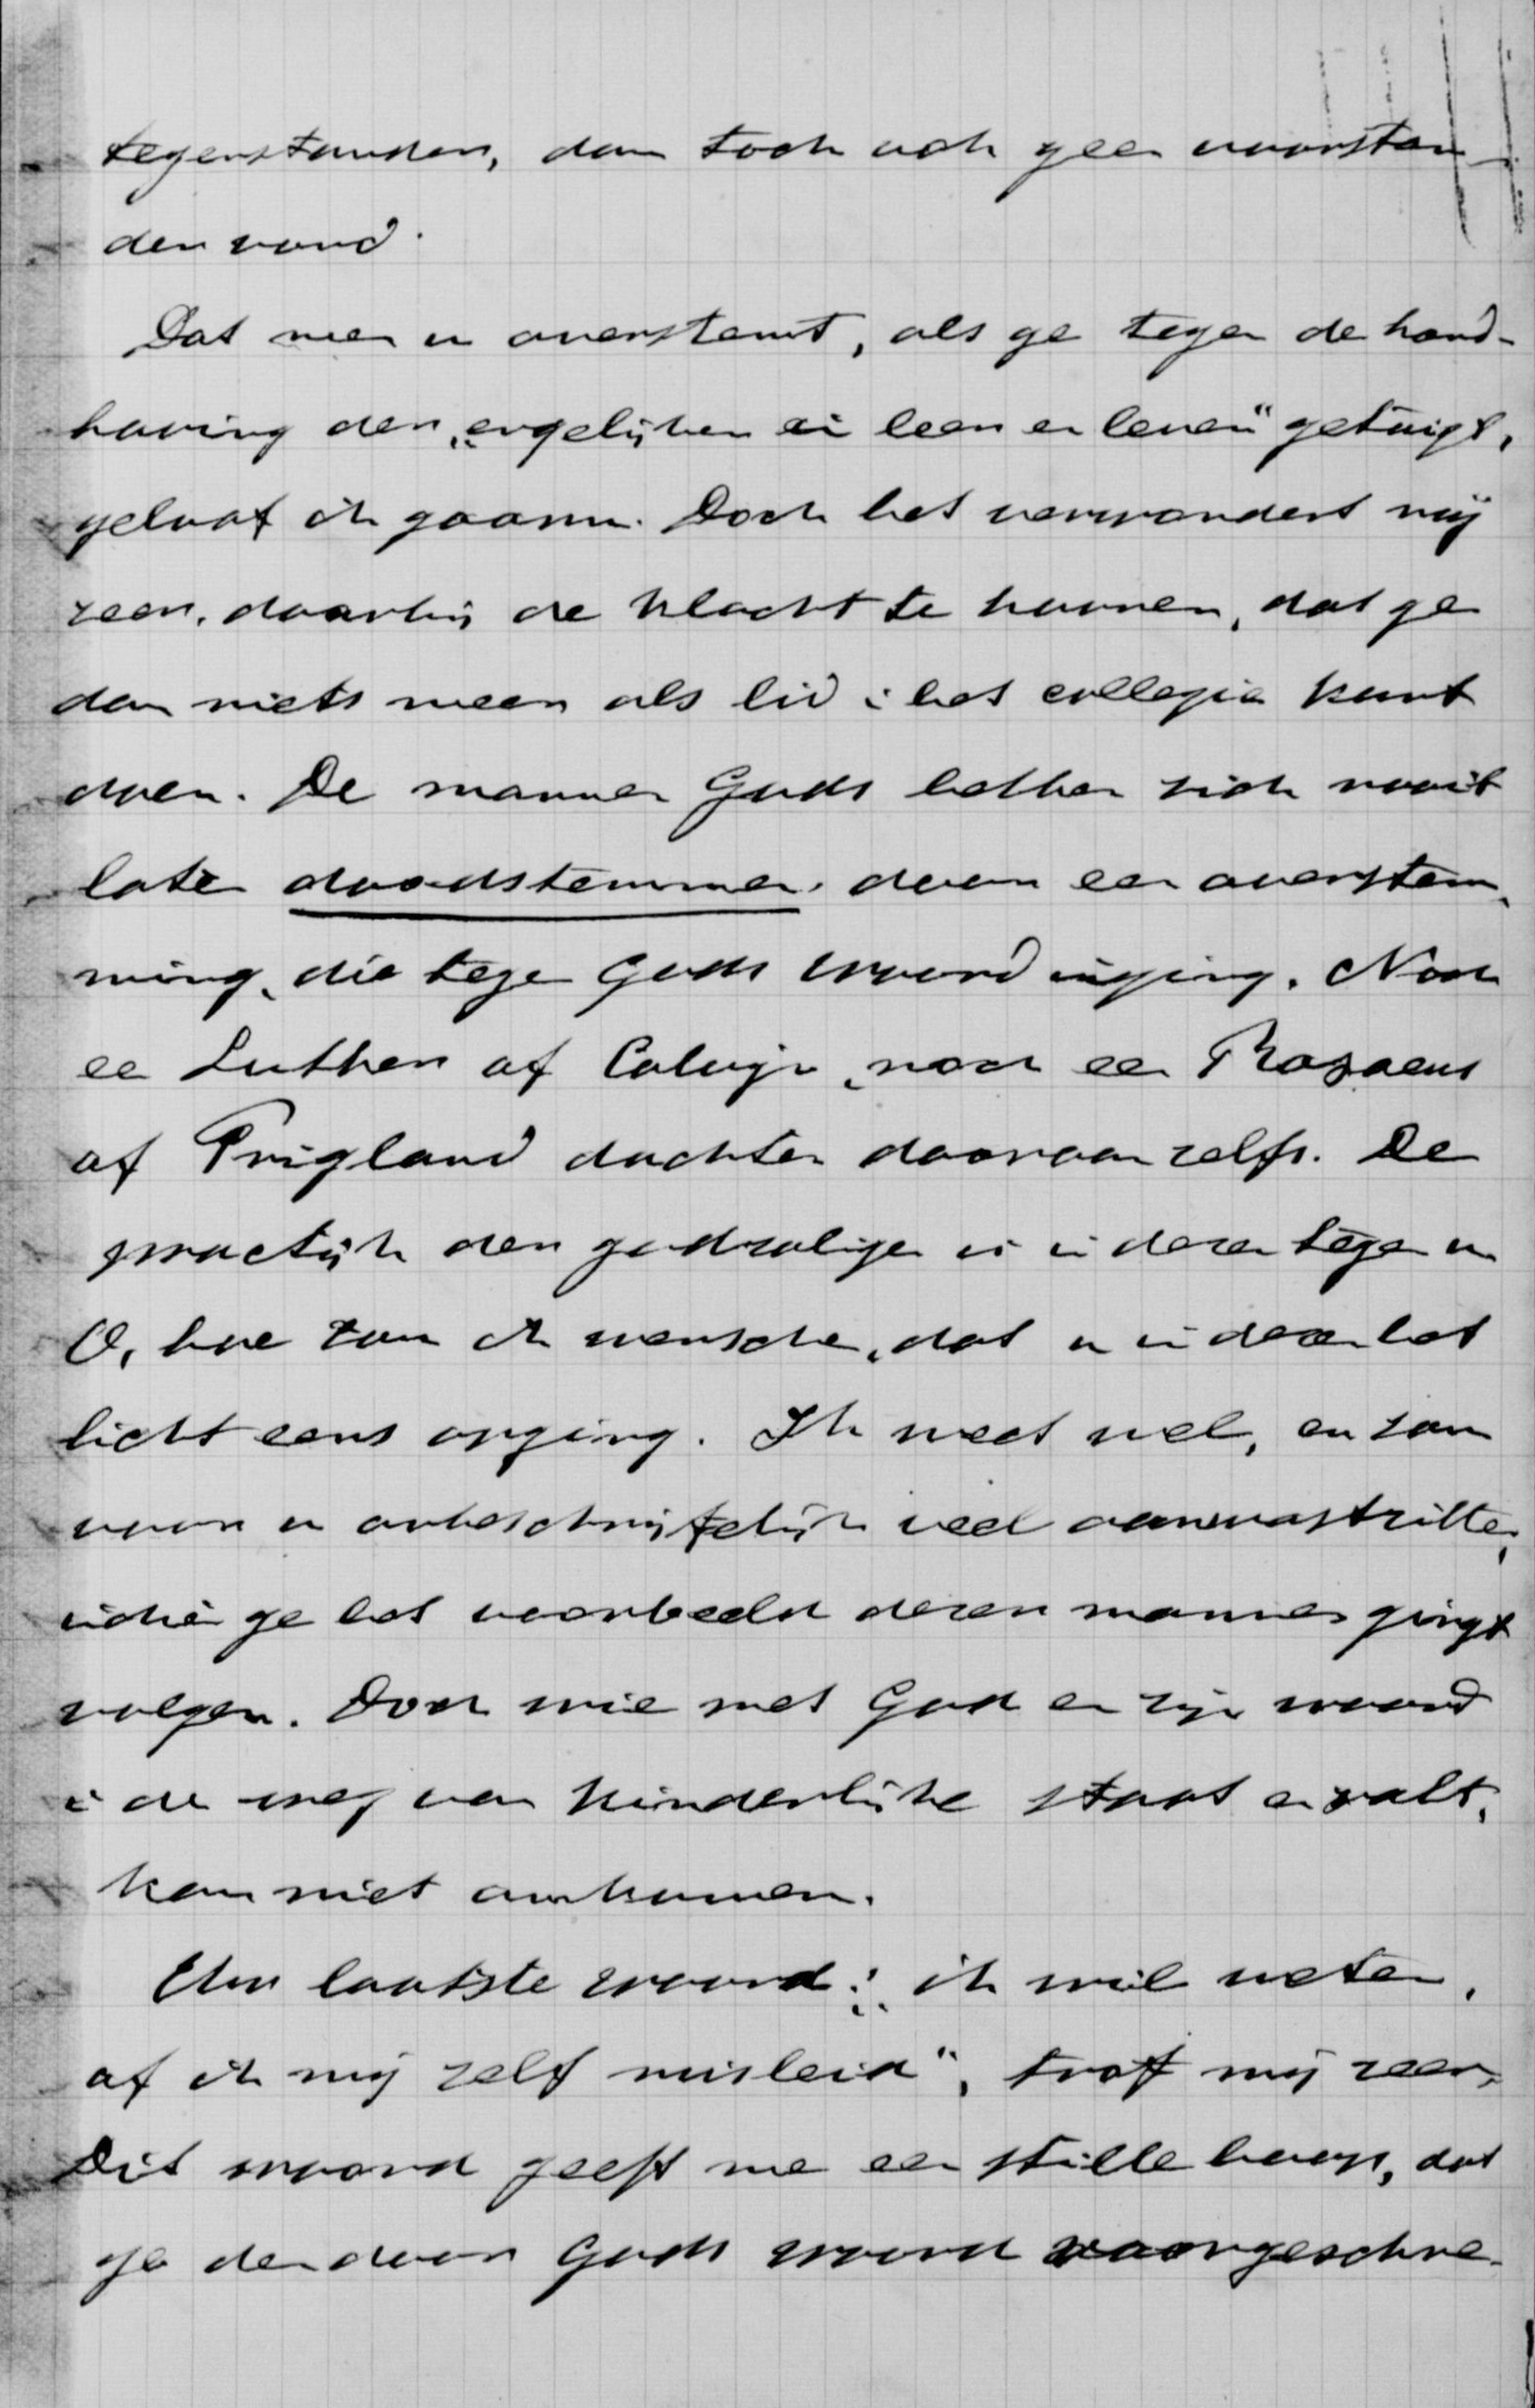 tegenstander, dan toch ook geen voorstan
der vond.
Dat men u overstemt, als ge tegen de hand-
having der „ergelijken in leer en leven" getuigt,
geloof ik gaarne. Doch het verwondert mij
zeer, daarbij de klacht te hooren, dat ge
dan niets meer als lid in het collegie kunt
doen. De mannen Gods hebben zich nooit
laten doodstemmen door een overstem-
ming, die tegen Gods woord inging. Noch
een Luther of Calvijn, noch een Rogaeus
of Trigland dachten daaraan zelfs. De
practijk der godzaligen is in dezen tegen u
O, hoe zou ik wenschen, dat u in dezen het
licht eens opging. Ik weet wel, er zou
voor u onbeschrijfelijk veel aan vastzitten,
indien ge het voorbeeld dezer mannen gingt
volgen. Doch wie met God en zijn woord
in de weg van kinderlijke staat en valt,
kan niet omkomen.
Uw laatste woord: „ik wil weten,
of ik mij zelf misleid", trof mij zeer.
Dit woord geeft me een stille hoop, dat
ge den door Gods woord voorgeschre-